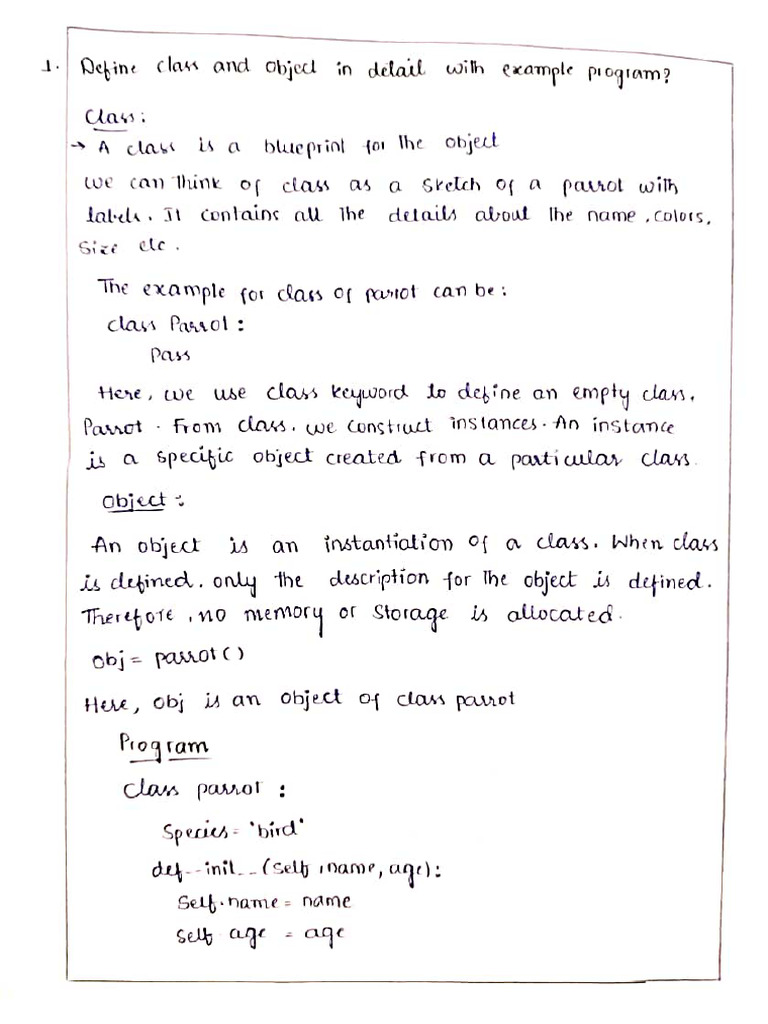 1. Define class and object in detail with example program?
Class:
→ A class is a blueprint for the object
we can think of class as a sketch of a parrot with
labels. It contains all the details about the name, colors,
size etc.
The example for class of parrot can be:
class Parrot:
Pass
Here, we use class keyword to define an empty class.
Parrot. From class, we construct instances. An instance
is a specific object created from a particular class.
Object:
An object is an instantiation of a class. When class
is defined, only the description for the object is defined.
Therefore, no memory or storage is allocated.
obj = parrot()
Here, obj is an object of class parrot
Program
class parrot:
Species = 'bird'
def__init__(self, name, age):
self.name = name
self age = age